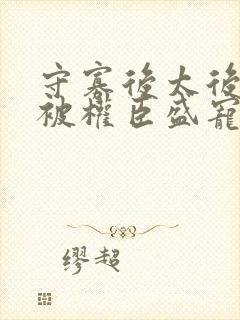 守寡後太後
被權臣盛寵
缪超